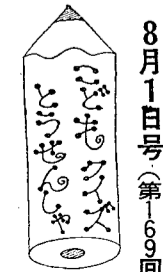 8月1日号(第169回
こどもクイズ
とうせんしゃ